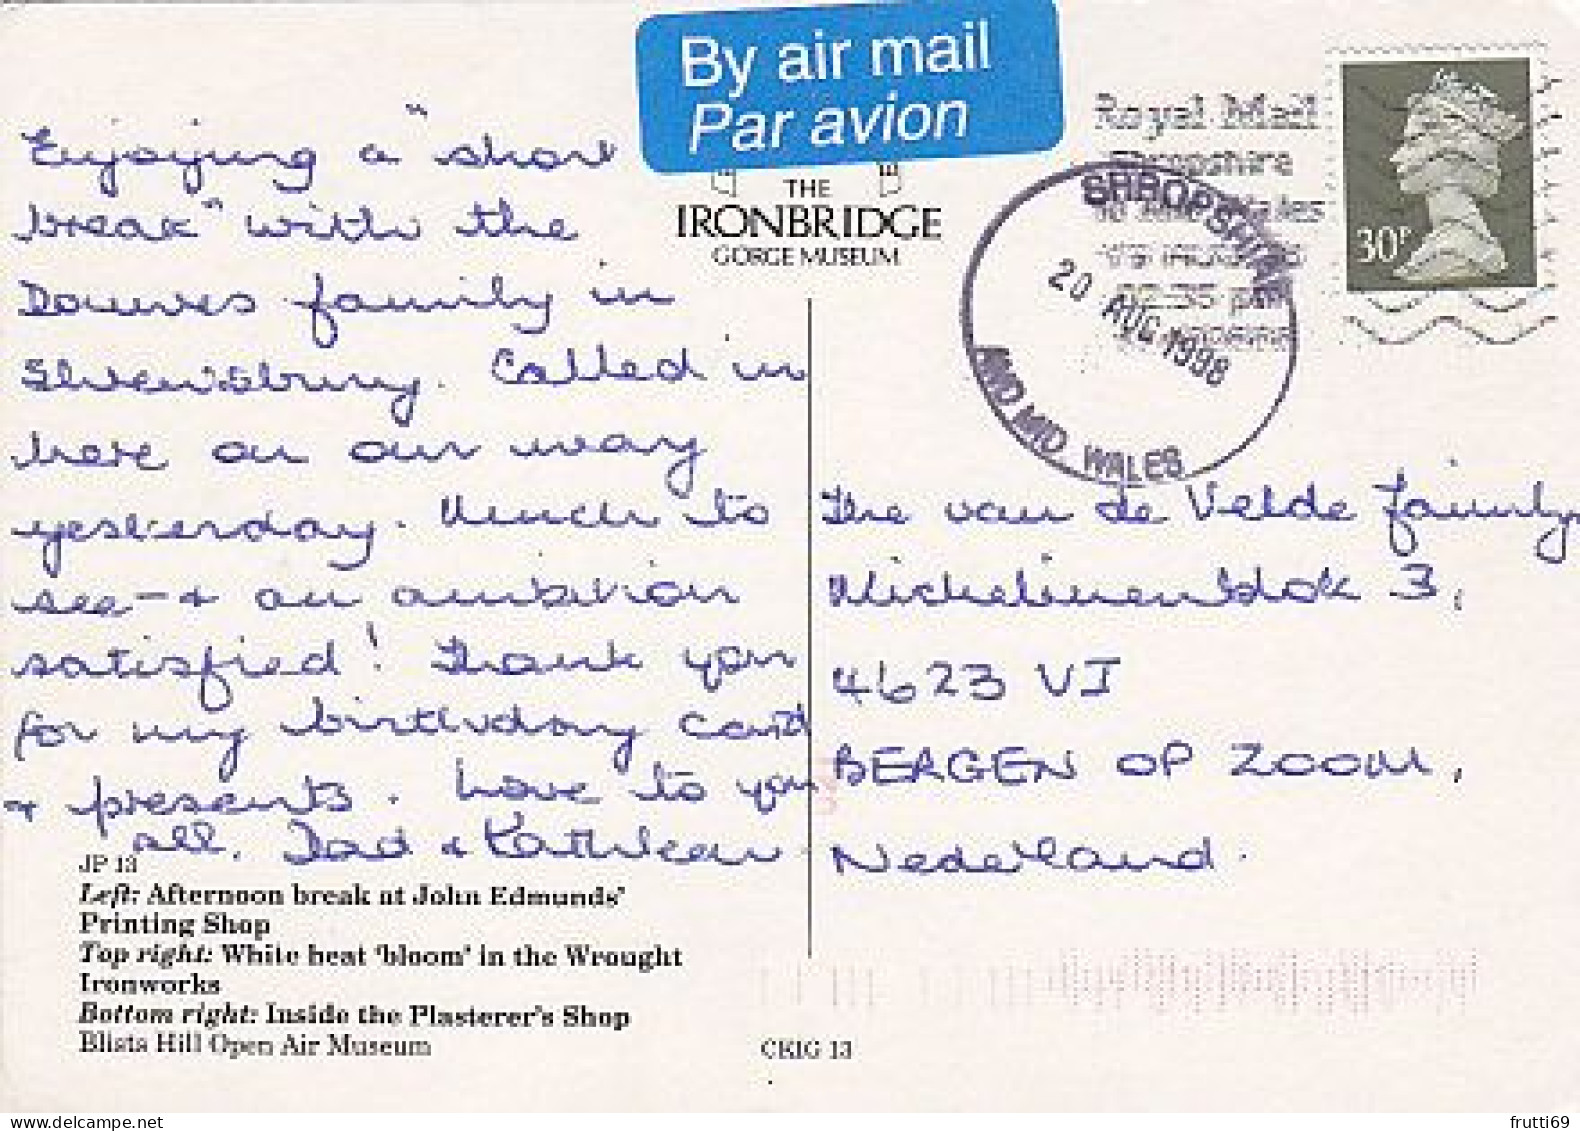 By air mail
Par avion
THE
IRONBRIDGE
GORGE MUSEUM
Royal Mail
Shropshire
SHROPSHIRE
20 AUG 1998
AND MID WALES
30P
Enjoying a "short
break" with the
Douwes family in
Shrewsbury. Called in
here on our way
yesterday. Much to
see - & an ambition
satisfied! Thank you
for my birthday card
& presents. Love to you
all, Dad & Kathleen
The van de Velde family
Michelinenblok 3,
4623 VJ
BERGEN OP ZOOM,
Nederland.
JP 13
Left: Afternoon break at John Edmunds'
Printing Shop
Top right: White heat 'bloom' in the Wrought
Ironworks
Bottom right: Inside the Plasterer's Shop
Blists Hill Open Air Museum
CKIG 13
frutti69